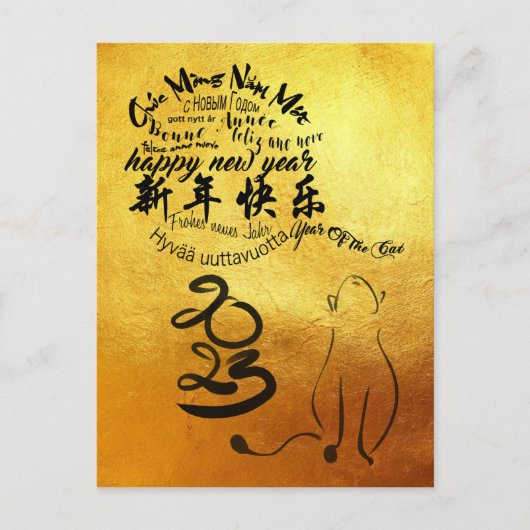 Chúc Mừng Năm Mới
с Новым Годом
gott nytt år Année
Bonne feliz ano novo
felice anno nuovo
happy new year
新年快乐
Frohes neues Jahr Year Of The Cat
Hyvää uuttavuotta
2023